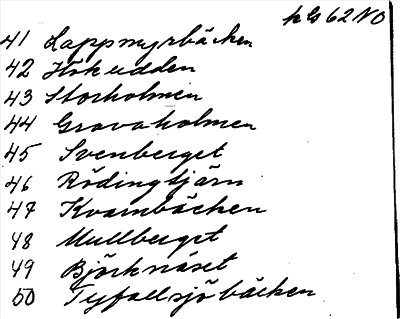 kG 62 NO
41 Lappmyrbäcken
42 Hökudden
43 Storholmen
44 Gravaholmen
45 Svenberget
46 Rödingtjärn
47 Kvarnbäcken
48 Mullberget
49 Björknäset
50 Tyfallsjöbäcken